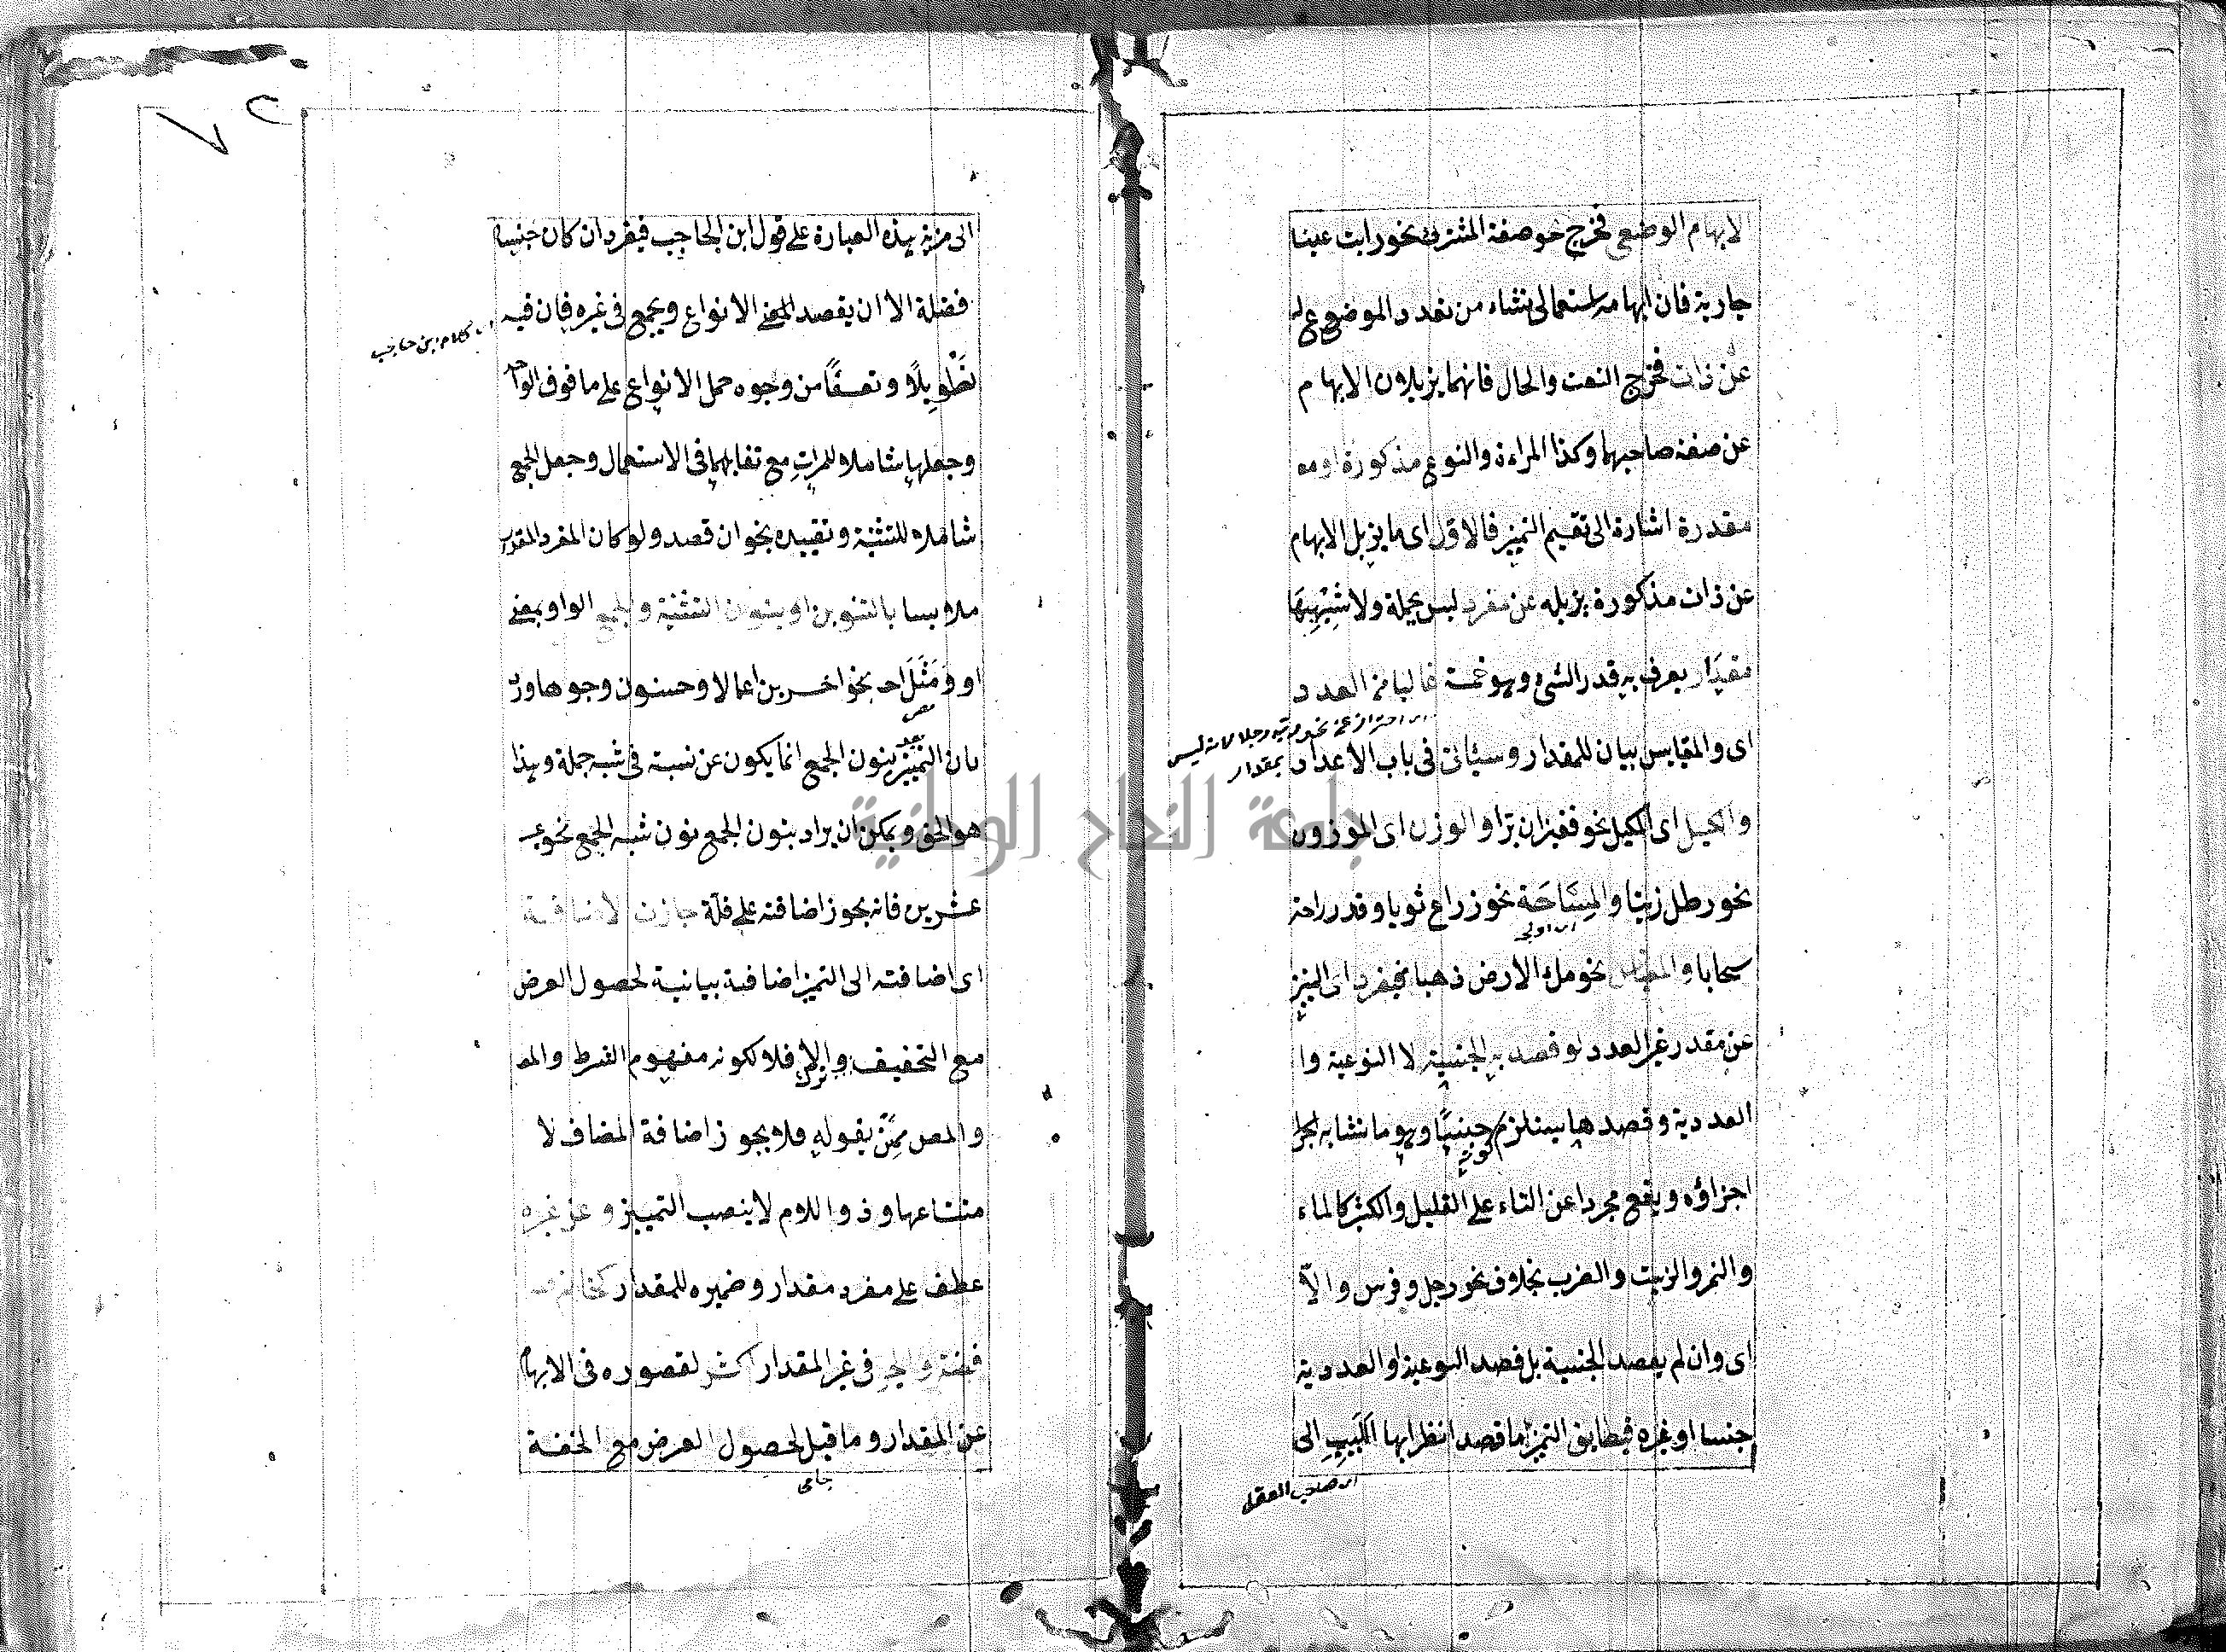 الابهام الوضعى فخرج نحو صفة المشترك نحو رايت عينا
جارية فان ابهامه استعمالى نشاء من تعدد الموضوع له
عن ذات فخرج النعت والحال فانهما يزيلان الابهام
عن صفة صاحبهما وكذا المراءة والنوع مذكورة او مه
مقدرة اشارة الى تقسيم التميز فالاول اى ما يزيل الابهام
عن ذات مذكورة يزيله عن مفرد ليس بجملة ولا شبهها
مقدار يعرف به قدر الشئ وهو خمسة غالبا من العدد
اى احتراز عن نحو رجلا لانه ليس
بمقدار
اى والمقايس بيان للمقدار وسيأتى فى باب الاعداد
والكيل اى المكيل نحو قفيزان برا والوزن اى الموزون
نحو رطل زيتا والمساحة نحو ذراع ثوبا وقدر راحة
سحابا نحو ملؤ الارض ذهبا فيفرد اى التميز
عن مقدر غير العدد لو قصد به الجنسية لا النوعية وا
العددية وقصدها يستلزم جنسيا وهو ما تشابه اجزا
كونه
اجزاؤه ويقع مجردا عن التاء على القليل والكثير كالماء
والتمر والزيت والضرب بخلاف نحو رجل وفرس والا
اى وان لم يقصد الجنسية بل قصد النوعية او العددية
جنسا او غيره فيطابق التميز ما قصد انظر ايها اللبيب الى
اى صاحب العقل
الى مزية هذه العبارة على قول ابن الحاجب فيفرد ان كان جنسا
فضلة الا ان يقصد المعنى الانواع ويجمع فى غيره فان فيه
اى كلام ابن حاجب
تطويلا وتعسفا من وجوه حمل الانواع على ما فوق الواحد
وجعلها شاملا للمرات مع تقابلهما فى الاستعمال وجعل الجمع
شاملا للتثنية وتقييده بنحو ان قصد ولو كان المفرد المقدر
ملابسا بالتنوين او بنون التثنية والجمع الواو بمعنى
او ومثل احد نحو اخسرين اعمالا وحسنون وجوها ورد
بان التميز بنون الجمع انما يكون عن نسبة فى شبه جملة وهذا
بعد
هو الحق ويمكن ان يراد بنون الجمع نون شبه الجمع نحو عـ
عشرين فانه يجوز اضافته على قلة جازت الاضافة
اى اضافته الى التميز اضافة بيانية لحصول الغرض
مع التخفيف والا فلا لكونه مفهوم الشرط والمصـ
والمص ممن يقوله فلا يجوز اضافة المضاف لا
متناعها وذو اللام لا ينصب التمييز وعن غيره
عطف على مفرد مقدار وضميره للمقدار كخاتم
فضة والجر فى غير المقدار اكثر لقصوره فى الابهام
عن المقدار وما قيل لحصول الغرض مع الخفة
جامى
جامعة النجاح الوطنية